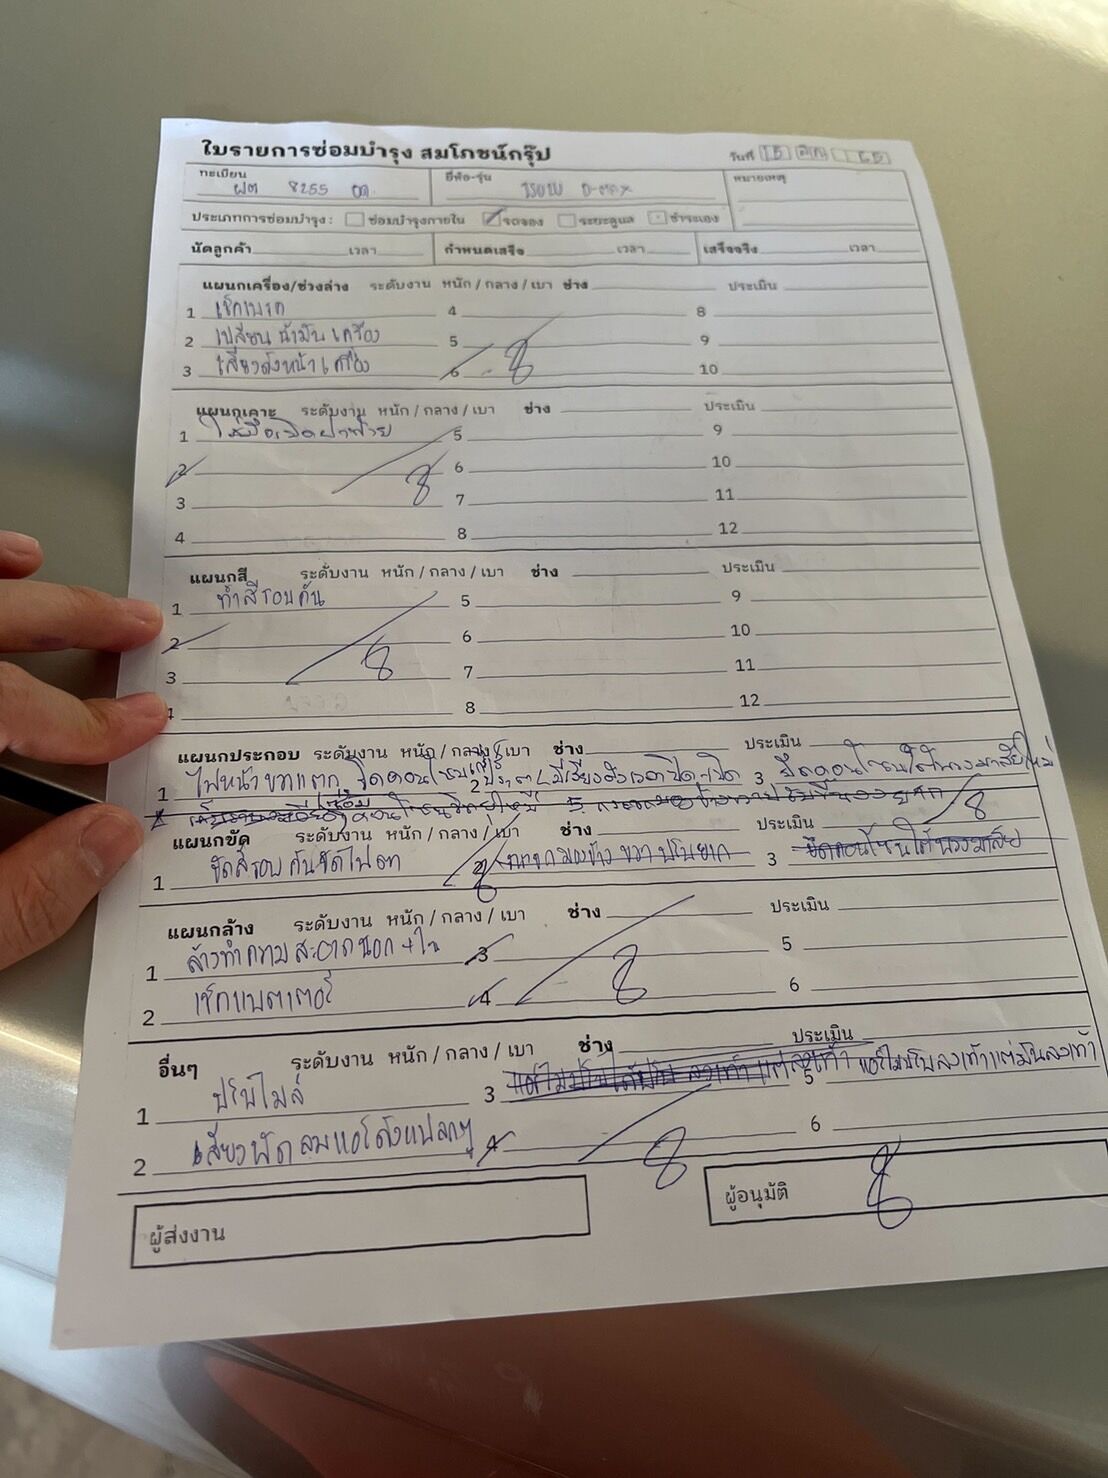 ใบรายการซ่อมบำรุง สมโภชน์กรุ๊ป วันที่ 15
ทะเบียน ยี่ห้อ-รุ่น หมายเหตุ
ผต 8255 ISUZU D-MAX
ประเภทการซ่อมบำรุง: ซ่อมบำรุงภายใน รถจอง ระยะดูแล ชำระเอง
นัดลูกค้า เวลา กำหนดเสร็จ เวลา เสร็จจริง เวลา
แผนกเครื่อง/ช่วงล่าง ระดับงาน หนัก / กลาง / เบา ช่าง ประเมิน
1 เช็กเบรก 4 8
2 เปลี่ยนน้ำมันเครื่อง 5 9
3 เสียงดังหน้าเครื่อง 6 10
แผนกเคาะ ระดับงาน หนัก / กลาง / เบา ช่าง ประเมิน
1 5 9
2 6 10
3 7 11
4 8 12
แผนกสี ระดับงาน หนัก / กลาง / เบา ช่าง ประเมิน
1 ทำสีรอบคัน 5 9
2 6 10
3 7 11
4 8 12
แผนกประกอบ ระดับงาน หนัก / กลาง / เบา ช่าง ประเมิน
1 ไฟหน้าขวาแตก 2 มีเสียงดังเวลาปิด-เปิด 3 ยึดคอนโซนใต้พวงมาลัยใหม่
แผนกขัด ระดับงาน หนัก / กลาง / เบา ช่าง ประเมิน
1 ขัดสีรอบคันขัดไฟตา 2 กระจกมองข้างขวาปรับยาก 3 ยึดคอนโซนใต้พวงมาลัย
แผนกล้าง ระดับงาน หนัก / กลาง / เบา ช่าง ประเมิน
1 ล้างทำความสะอาดนอก+ใน 3 5
2 เช็กแบตเตอรี่ 4 6
อื่นๆ ระดับงาน หนัก / กลาง / เบา ช่าง ประเมิน
1 ปรับไมล์ 3 5 แอร์ไม่ปรับลงเท้าแต่มันลงเท้า
2 เสียงพัดลมแอร์ดังแปลกๆ 4 6
ผู้ส่งงาน ผู้อนุมัติ